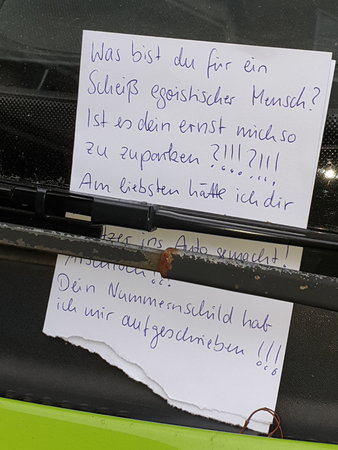 Was bist du für ein
Scheiß egoistischer Mensch?
Ist es dein ernst mich so
zu zuparken ?!!!?!!!
Am liebsten hätte ich dir
ins Auto gemacht!
Dein Nummernschild hab
ich mir aufgeschrieben !!!